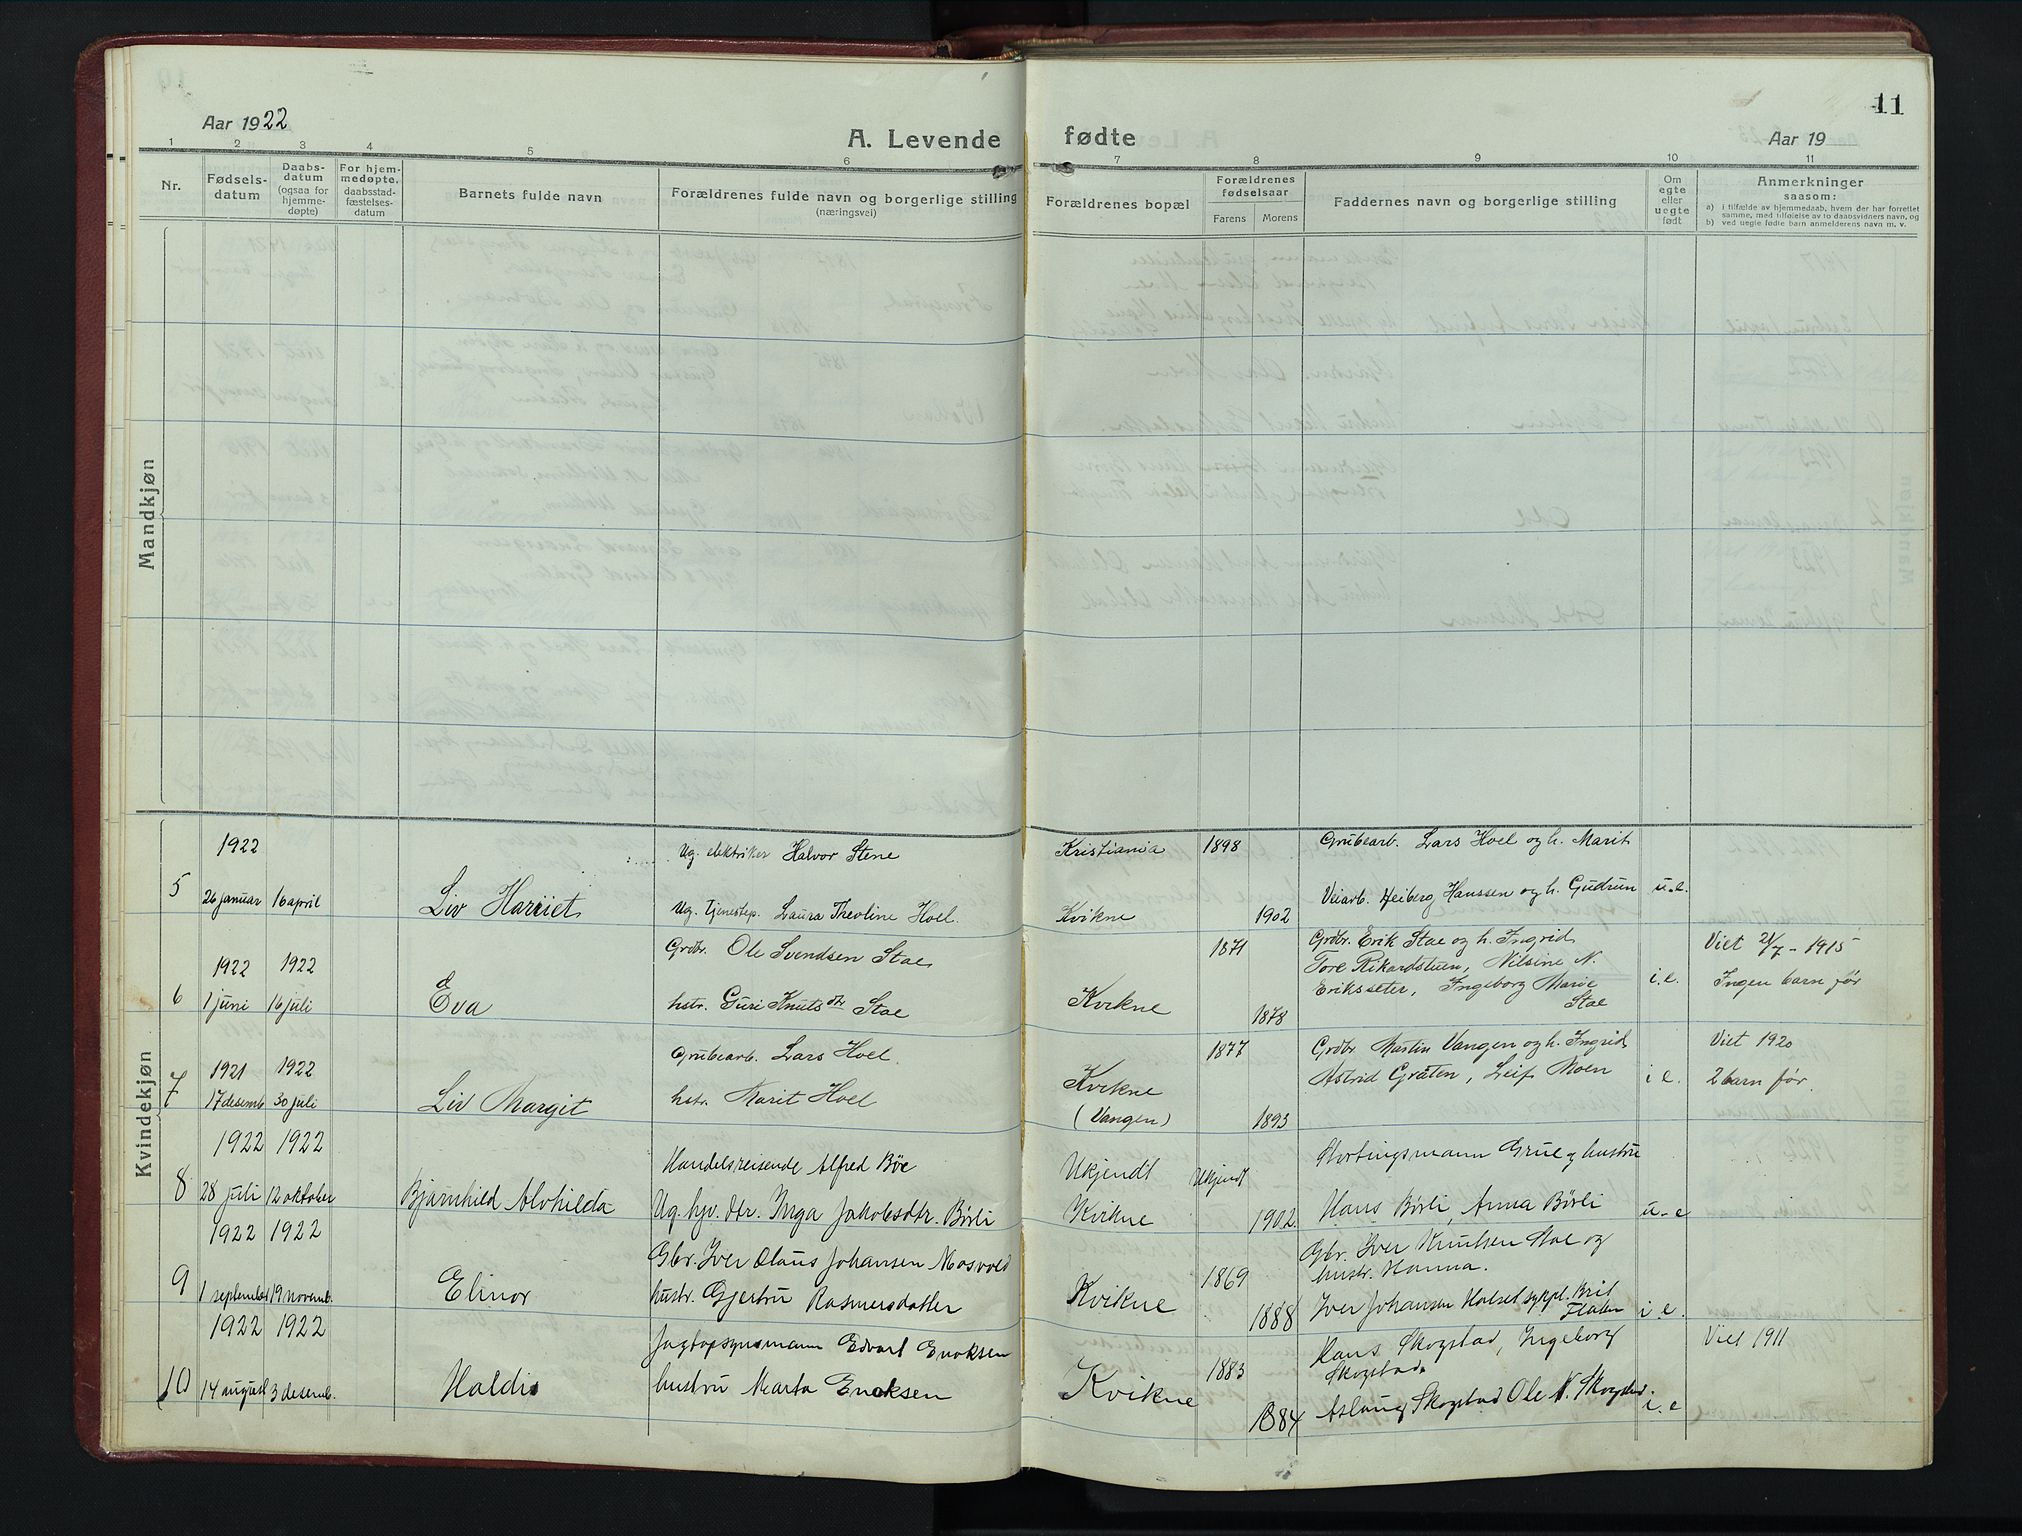 11
Aar 1922
A. Levende fødte
Aar 19
1 2 3 4 5 6 7 8 9 10 11
Nr.
Fødsels-
datum
Daabs-
datum
(ogsaa for
hjemme-
døpte)
For hjem-
medøpte.
daabsstad-
fæstelses-
datum
Barnets fulde navn
Forældrenes fulde navn og borgerlige stilling
(næringsvei)
Forældrenes bopæl
Forældrenes
fødselsaar
Farens
Morens
Faddernes navn og borgerlige stilling
Om
egte
eller
uegte
født
Anmerkninger
saasom:
a) i tilfælde av hjemmedaab, hvem der har forrettet
samme, med tilføielse av to daabsvidners navn, og
b) ved uegte fødte barn anmelderens navn m. v.
Mandkjøn
Kvindekjøn
1922 Ug. elektriker Halvor Stene Kristiania 1898 Grubearb. Lars Hoel og h. Marit
5 26 januar 16 april Liv Harriet Ug. Tjenestep. Laura Theoline Hoel. Kvikne 1902 Veiarb. Heiberg Hanssen og h. Gudrun u.e.
1922 1922 Grdbr. Ole Svendsen Stae 1871 Grdbr. Erik Stae og h. Ingrid Viet 21/7 - 1915
Tore Rikardstuen, Nilsine N.
6 1 juni 16 juli Eva hstr. Guri Knutsdtr Stae Kvikne 1878 Eriksseter, Ingeborg Marie i.e. Ingen barn før
Stae
1921 1922 Grubearb. Lars Hoel 1877 Grdbr Martin Vangen og h. Ingrid Viet 1920
7 17 desemb 30 juli Liv Margit hstr. Marit Hoel Kvikne Astrid Gråten, Leif Moen i e. 2 barn før.
(Vangen) 1893
1922 1922 Handelsreisende Alfred Bøe Ukjendt Ukjendt Stortingsmann Grue og hustru
8 28 juli 12 oktober Bjarnhild Alvhilda Ug. hjv. dtr. Inga Jakobsdtr. Børli Kvikne 1902 Hans Børli, Anna Børli u-e
1922 1922 Gbr. Iver Olaus Johansen Mosvold 1869 Gbr. Iver Knutsen Stae og
hustr. Hanna.
9 1 september 19 novemb. Elinor hustr. Gjertru Rasmersdatter Kvikne 1888 Iver Johansen Halset sykpl. Brit i e.
Flaten
1922 1922 Jagtopsynsmann Edvart Enoksen 1883 Hans Skogstad, Ingeborg Viet 1911
Skogstad
10 14 august 3 desemb. Haldis hustru Marta Enoksen Kvikne 1884 Aslaug Skogstad Ole N. Skogstad. i.e